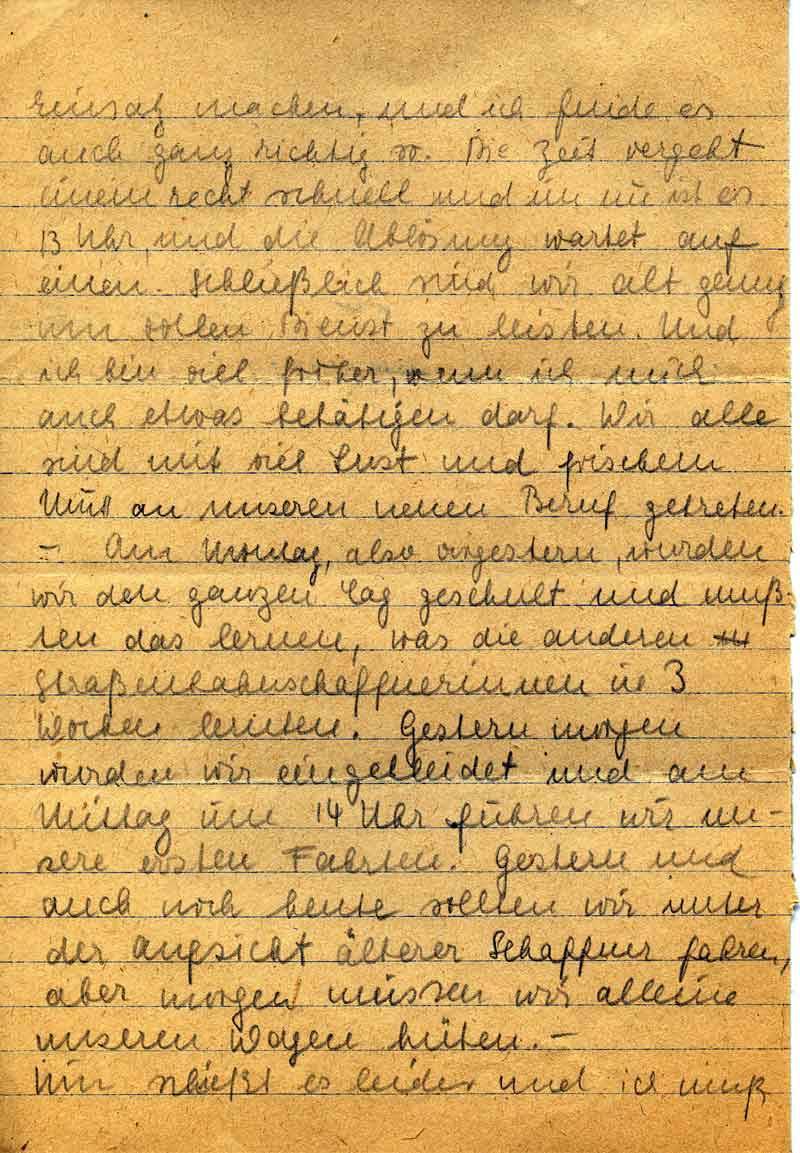 Einsatz machen, und ich finde es
auch ganz richtig so. Die Zeit vergeht
einem recht schnell und im nu ist es
13 Uhr, und die Ablösung wartet auf
einen. Schließlich sind wir alt genug
um vollen Dienst zu leisten. Und
ich bin viel froher, wenn ich mich
auch etwas betätigen darf. Wir alle
sind mit viel Lust und frischem
Mut an unseren neuen Beruf getreten.
– Am Montag, also vorgestern, wurden
wir den ganzen Tag geschult und muß-
ten das lernen, was die anderen
Straßenbahnschaffnerinnen in 3
Wochen lernten! Gestern morgen
wurden wir eingekleidet und am
Mittag um 14 Uhr fuhren wir un-
sere ersten Fahrten. Gestern und
auch noch heute sollten wir unter
der Aufsicht älterer Schaffner fahren,
aber morgen müssen wir alleine
unseren Wagen hüten. –
Nun schießt es leider und ich muß